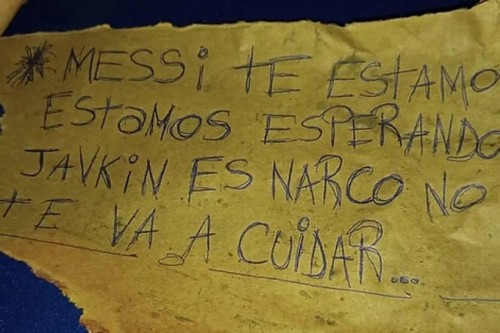 MESSi TE ESTAMO
ESTaMOS ESPERANDO
JAVKiN ES NARCO NO
TE VA A CUiDAR...